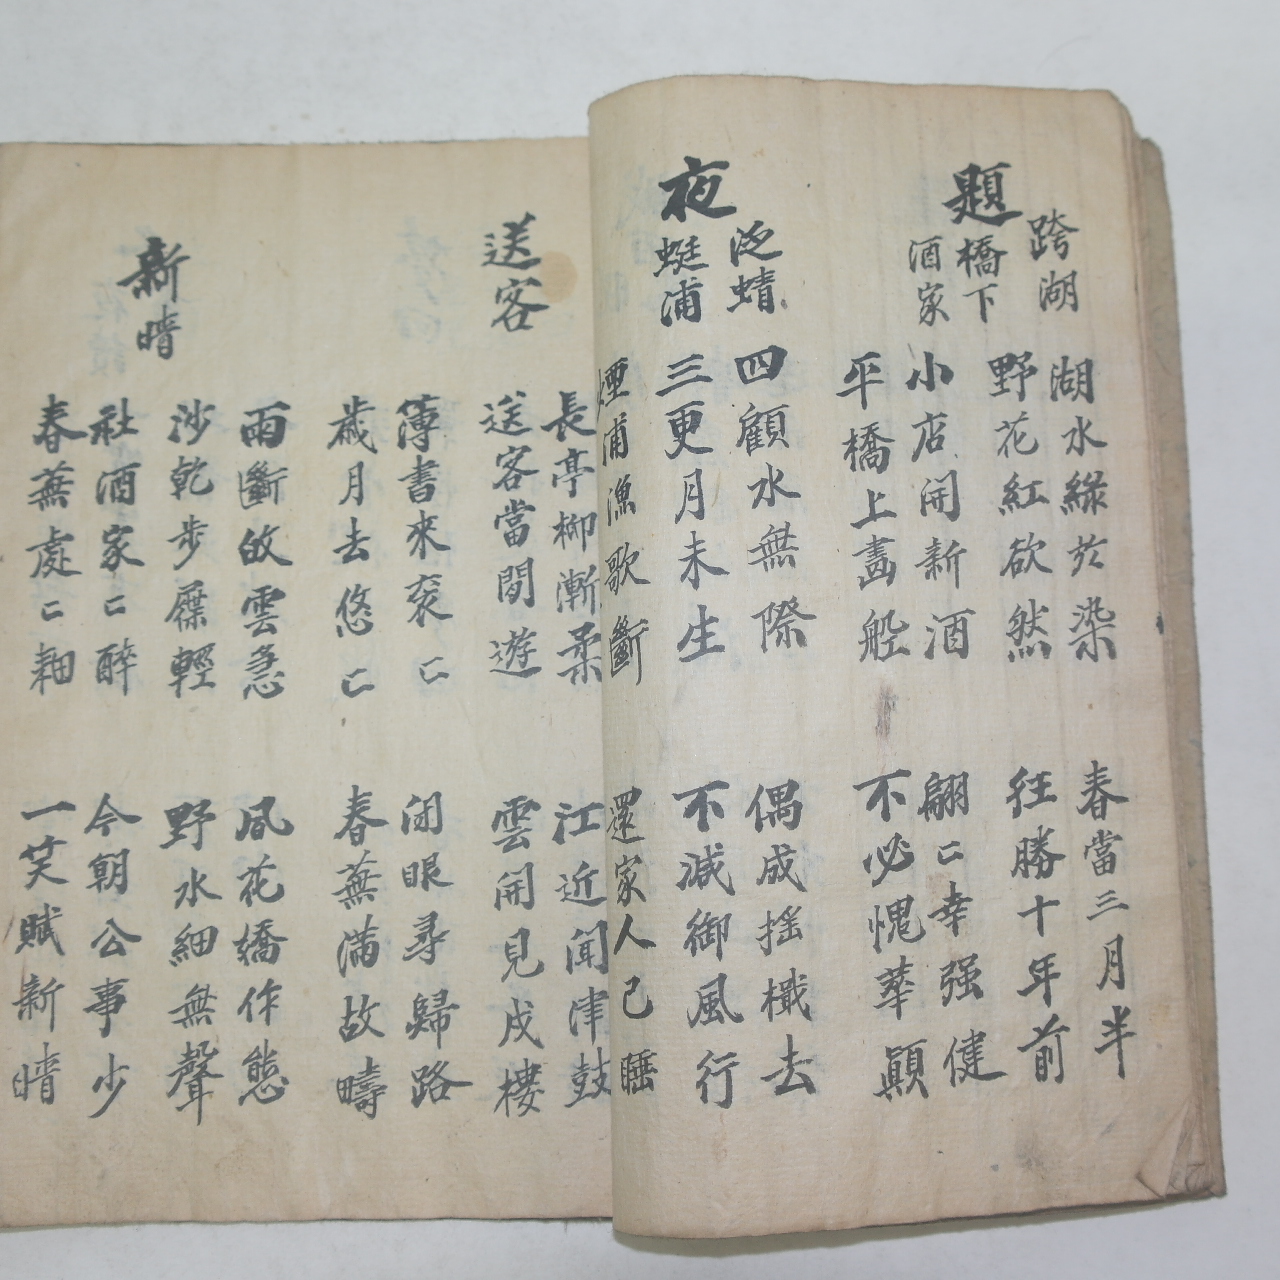 題跨湖橋下酒家
湖水綠於染 春當三月半
野花紅欲然 狂勝十年前
小店開新酒 翩〻幸强健
平橋上畵舩 不必愧華顚
夜泛蜻蜓浦
四顧水無際 偶成搖檝去
三更月未生 不減御風行
煙浦漁歌斷 還家人已睡
送客
長亭柳漸柔 江近聞津鼓
送客當閒遊 雲開見戍樓
薄書來衮〻 閉眼尋歸路
歲月去悠〻 春蕪滿故疇
新晴
雨斷故雲急 風花嬌作態
沙乾步屧輕 野水細無聲
社酒家〻醉 今朝公事少
春蕪處〻耕 一笑賦新晴